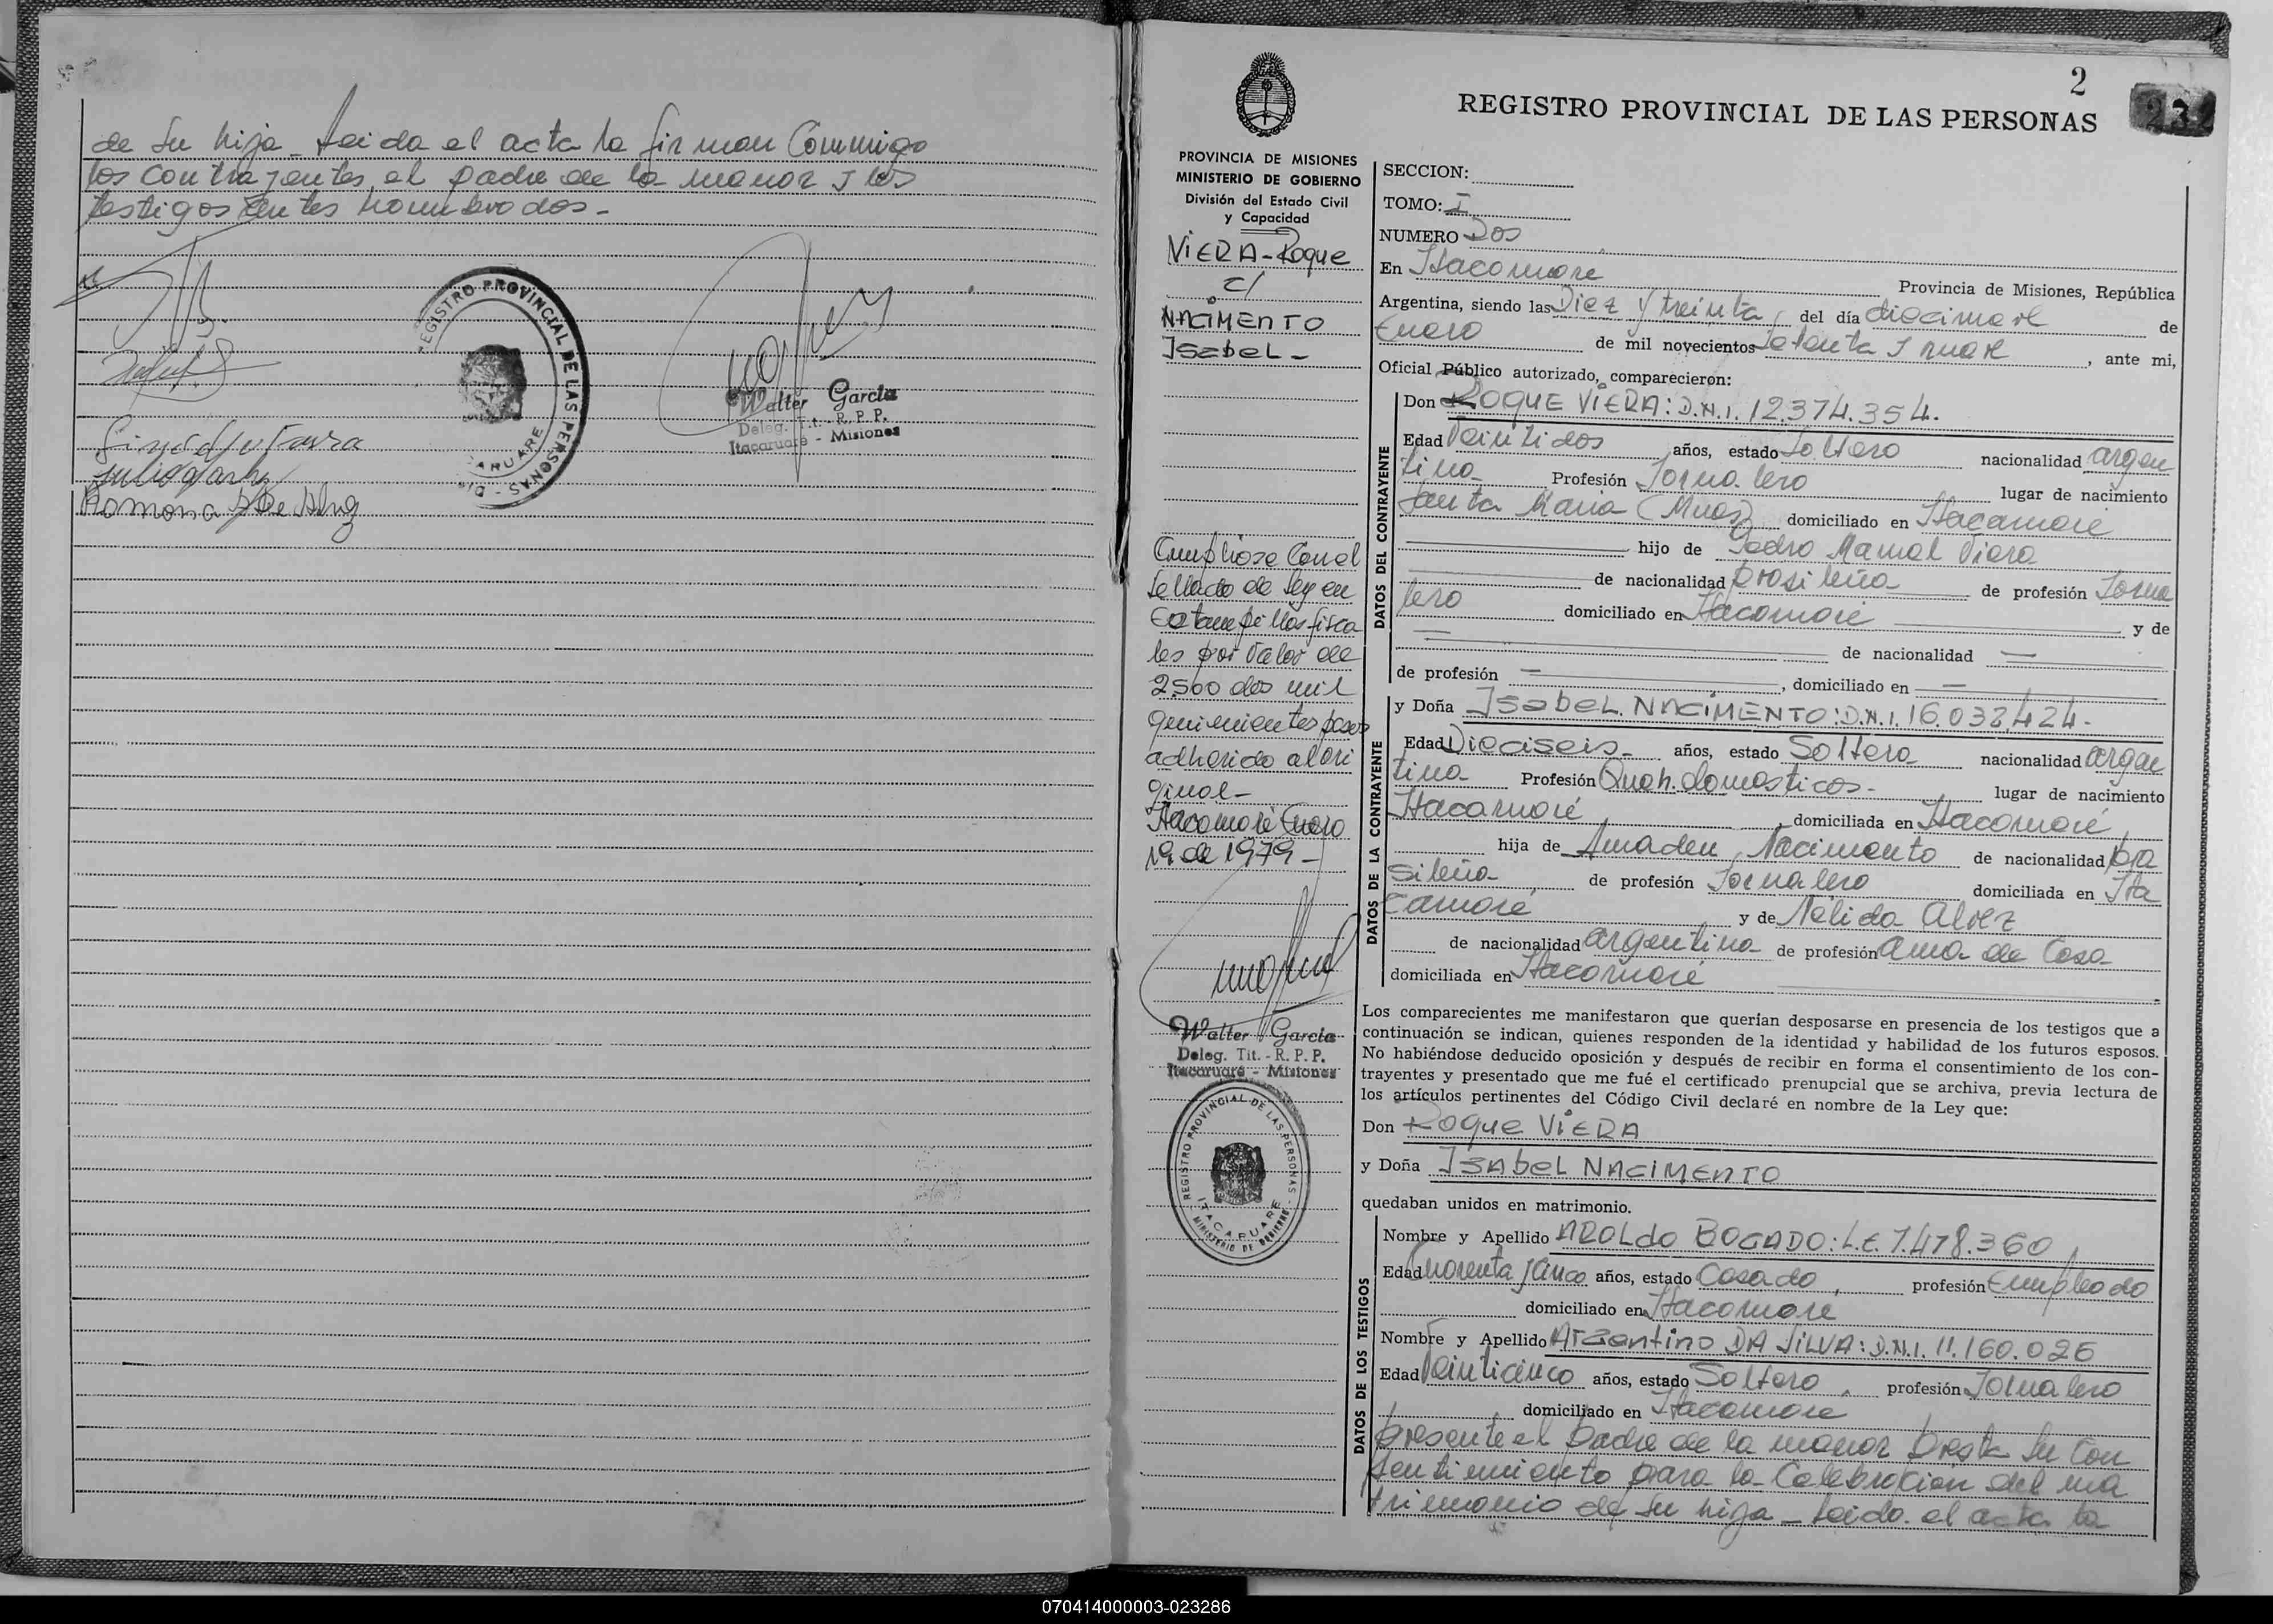 de su hija_ Leida el acta la firman Conmigo
los contrayentes, el padre de la menor y los
testigos antes nombrados-
REGISTRO PROVINCIAL DE LAS PERSONAS
Walter Garcia
Deleg. Tit. - R. P. P.
Itacaruaré - Misiones
Ramona
2
REGISTRO PROVINCIAL DE LAS PERSONAS
PROVINCIA DE MISIONES
MINISTERIO DE GOBIERNO
División del Estado Civil
y Capacidad
VIERA-Roque
c/
NACIMENTO
Isabel-
Cumpliose Con el
sellado de ley en
Estampillas fisca
les por valor de
2.500 dos mil
quinientos pesos
adherido al ori
ginal-
Itacaruaré Enero
19 de 1979-
Walter Garcia
Deleg. Tit. - R. P. P.
Itacaruaré - Misiones
REGISTRO PROVINCIAL DE LAS PERSONAS
ITACARUARE
MINISTERIO DE GOBIERNO
SECCION:
TOMO: I
NUMERO Dos
En Itacaruare Provincia de Misiones, República
Argentina, siendo las Diez y treinta, del día diecinueve de
Enero de mil novecientos Setenta y nueve, ante mi,
Oficial Público autorizado, comparecieron:
DATOS DEL CONTRAYENTE
Don ROQUE VIERA: D.N.I. 12.374.354.
Edad Veintidos años, estado Soltero nacionalidad argen
tina Profesión Jornalero lugar de nacimiento
Santa Maria (Mnes) domiciliado en Itacaruaré
hijo de Pedro Manuel Viera
de nacionalidad brasileña de profesión Jorna
lero domiciliado en Itacaruaré y de
de nacionalidad
de profesión , domiciliado en
DATOS DE LA CONTRAYENTE
y Doña Isabel NACIMENTO: D.N.I. 16.032.424.
Edad Dieciseis- años, estado Soltera nacionalidad argen
tina Profesión Queh. domesticos- lugar de nacimiento
Itacaruaré, domiciliada en Itacaruaré,
hija de Amadeu Nacimento de nacionalidad bra
sileña de profesión Jornalero domiciliada en Ita
caruaré y de Nelida Alvez
de nacionalidad argentina de profesión ama de Casa
domiciliada en Itacaruaré
Los comparecientes me manifestaron que querían desposarse en presencia de los testigos que a
continuación se indican, quienes responden de la identidad y habilidad de los futuros esposos.
No habiéndose deducido oposición y después de recibir en forma el consentimiento de los con-
trayentes y presentado que me fué el certificado prenupcial que se archiva, previa lectura de
los artículos pertinentes del Código Civil declaré en nombre de la Ley que:
Don Roque VIERA
y Doña ISAbeL NACIMENTO
quedaban unidos en matrimonio.
DATOS DE LOS TESTIGOS
Nombre y Apellido AROLdo BOGADO: L.E. 7.478.360
Edad Cuarenta y Cinco años, estado Casado, profesión Empleado
domiciliado en Itacaruare
Nombre y Apellido Argentino DA SILVA: D.N.I. 11.160.026
Edad Veinticinco años, estado Soltero, profesión Jornalero
domiciliado en Itacaruare
presente el padre de la menor presta su Con
sentimiento para la Celebracion del ma
trimonio de su hija_ Leida el acta la
070414000003-023286